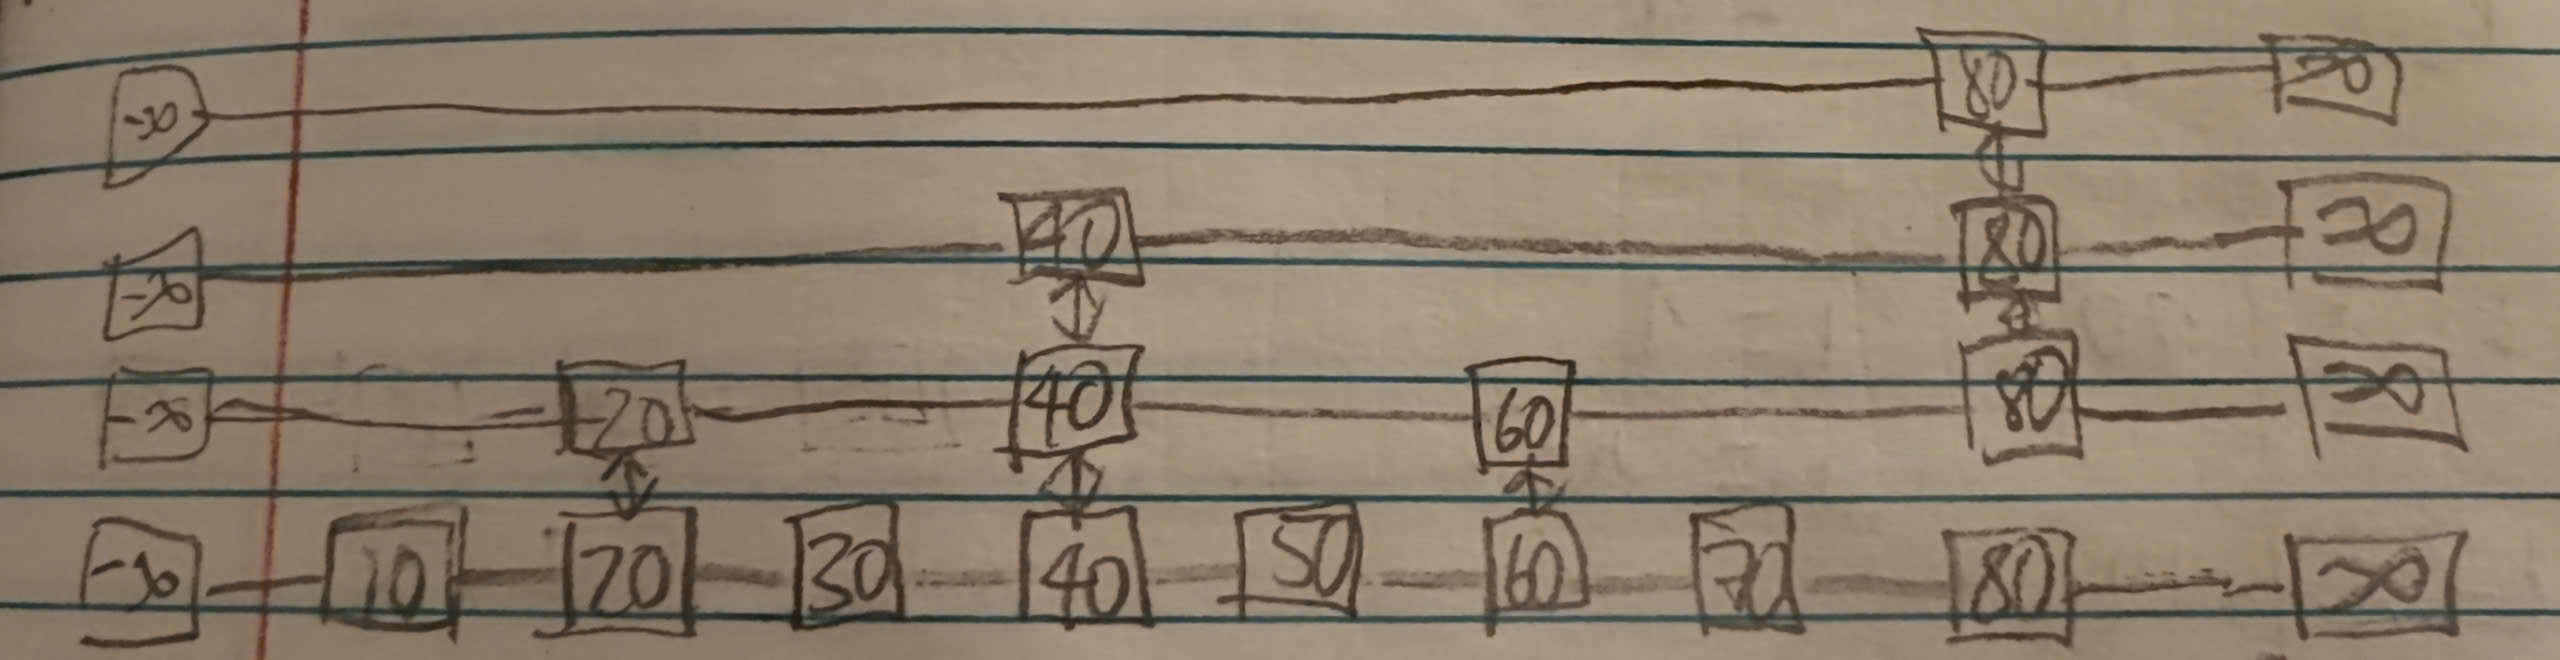 -∞ 80 ∞
-∞ 40 80 ∞
-∞ 20 40 60 80 ∞
-∞ 10 20 30 40 50 60 70 80 ∞